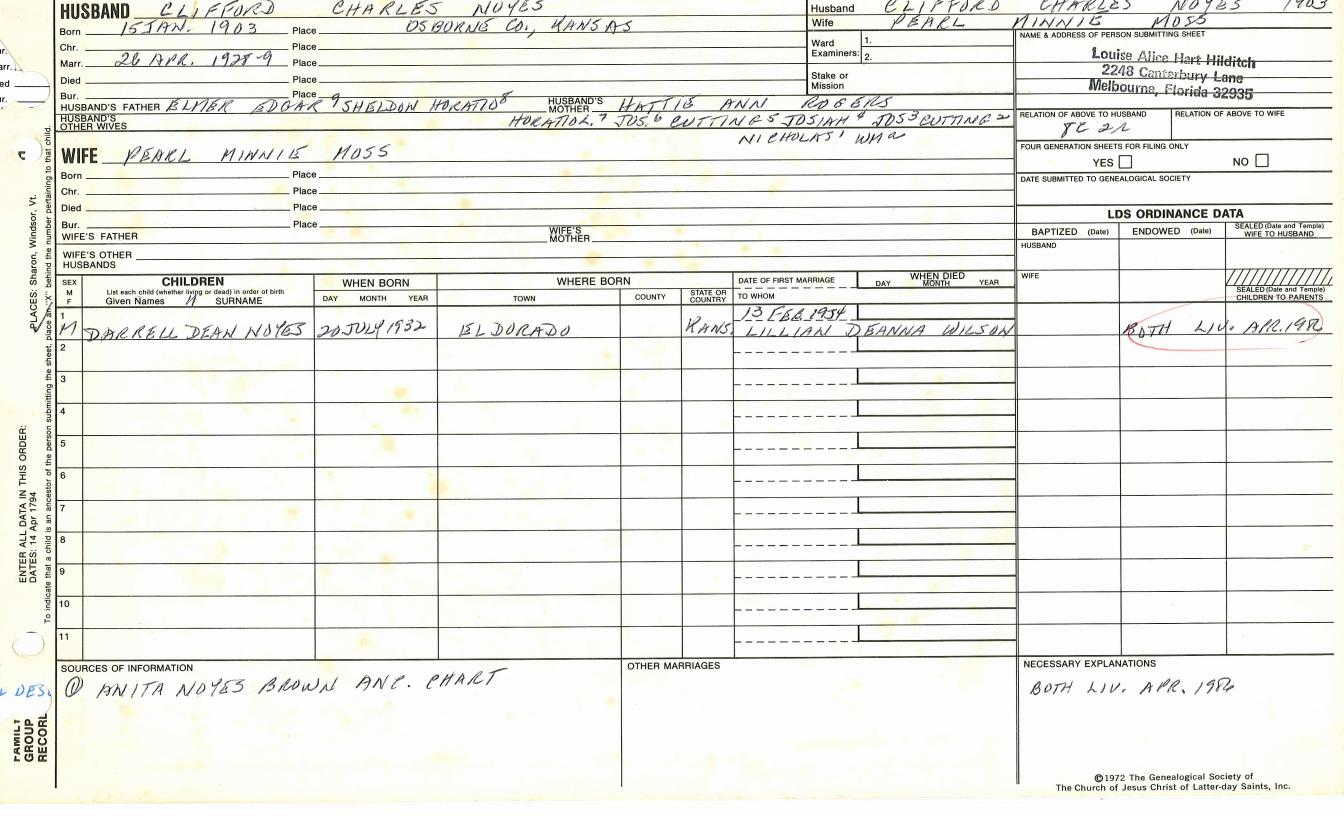 HUSBAND CLIFFORD CHARLES NOYES
Born 15 JAN. 1903 Place OSBORNE CO., KANSAS
Chr. Place
Marr. 26 APR. 1928-9 Place
Died Place
Bur. Place
HUSBAND'S FATHER ELMER EDGAR 9 SHELDON HORATIO 8 HUSBAND'S MOTHER HATTIE ANN ROGERS
HUSBAND'S OTHER WIVES HORATIO L. 7 JOS. 6 CUTTING 5 JOSIAH 4 JOS 3 CUTTING 2
NICHOLAS 1 WM a
Husband CLIFFORD CHARLES NOYES 1903
Wife PEARL MINNIE MOSS
Ward Examiners: 1.
2.
Stake or Mission
NAME & ADDRESS OF PERSON SUBMITTING SHEET
Louise Alice Hart Hilditch
2248 Canterbury Lane
Melbourne, Florida 32935
RELATION OF ABOVE TO HUSBAND RELATION OF ABOVE TO WIFE
8C 2R
FOUR GENERATION SHEETS FOR FILING ONLY
YES NO
DATE SUBMITTED TO GENEALOGICAL SOCIETY
WIFE PEARL MINNIE MOSS
Born Place
Chr. Place
Died Place
Bur. Place
WIFE'S FATHER WIFE'S MOTHER
WIFE'S OTHER HUSBANDS
LDS ORDINANCE DATA
BAPTIZED (Date) ENDOWED (Date) SEALED (Date and Temple) WIFE TO HUSBAND
HUSBAND
WIFE
SEALED (Date and Temple) CHILDREN TO PARENTS
SEX M F
CHILDREN
List each child (whether living or dead) in order of birth
Given Names SURNAME
WHEN BORN
DAY MONTH YEAR
WHERE BORN
TOWN COUNTY STATE OR COUNTRY
DATE OF FIRST MARRIAGE
TO WHOM
WHEN DIED
DAY MONTH YEAR
1 13 FEB 1954
M DARRELL DEAN NOYES 20 JULY 1932 EL DORADO KANS. LILLIAN DEANNA WILSON BOTH LIV. APR. 1986
2
3
4
5
6
7
8
9
10
11
SOURCES OF INFORMATION
① ANITA NOYES BROWN ANC. CHART
OTHER MARRIAGES
NECESSARY EXPLANATIONS
BOTH LIV. APR. 1986
©1972 The Genealogical Society of
The Church of Jesus Christ of Latter-day Saints, Inc.
FAMILY GROUP RECORD
ENTER ALL DATA IN THIS ORDER:
DATES: 14 Apr 1794
PLACES: Sharon, Windsor, Vt.
To indicate that a child is an ancestor of the person submitting the sheet, place an "X" behind the number pertaining to that child.